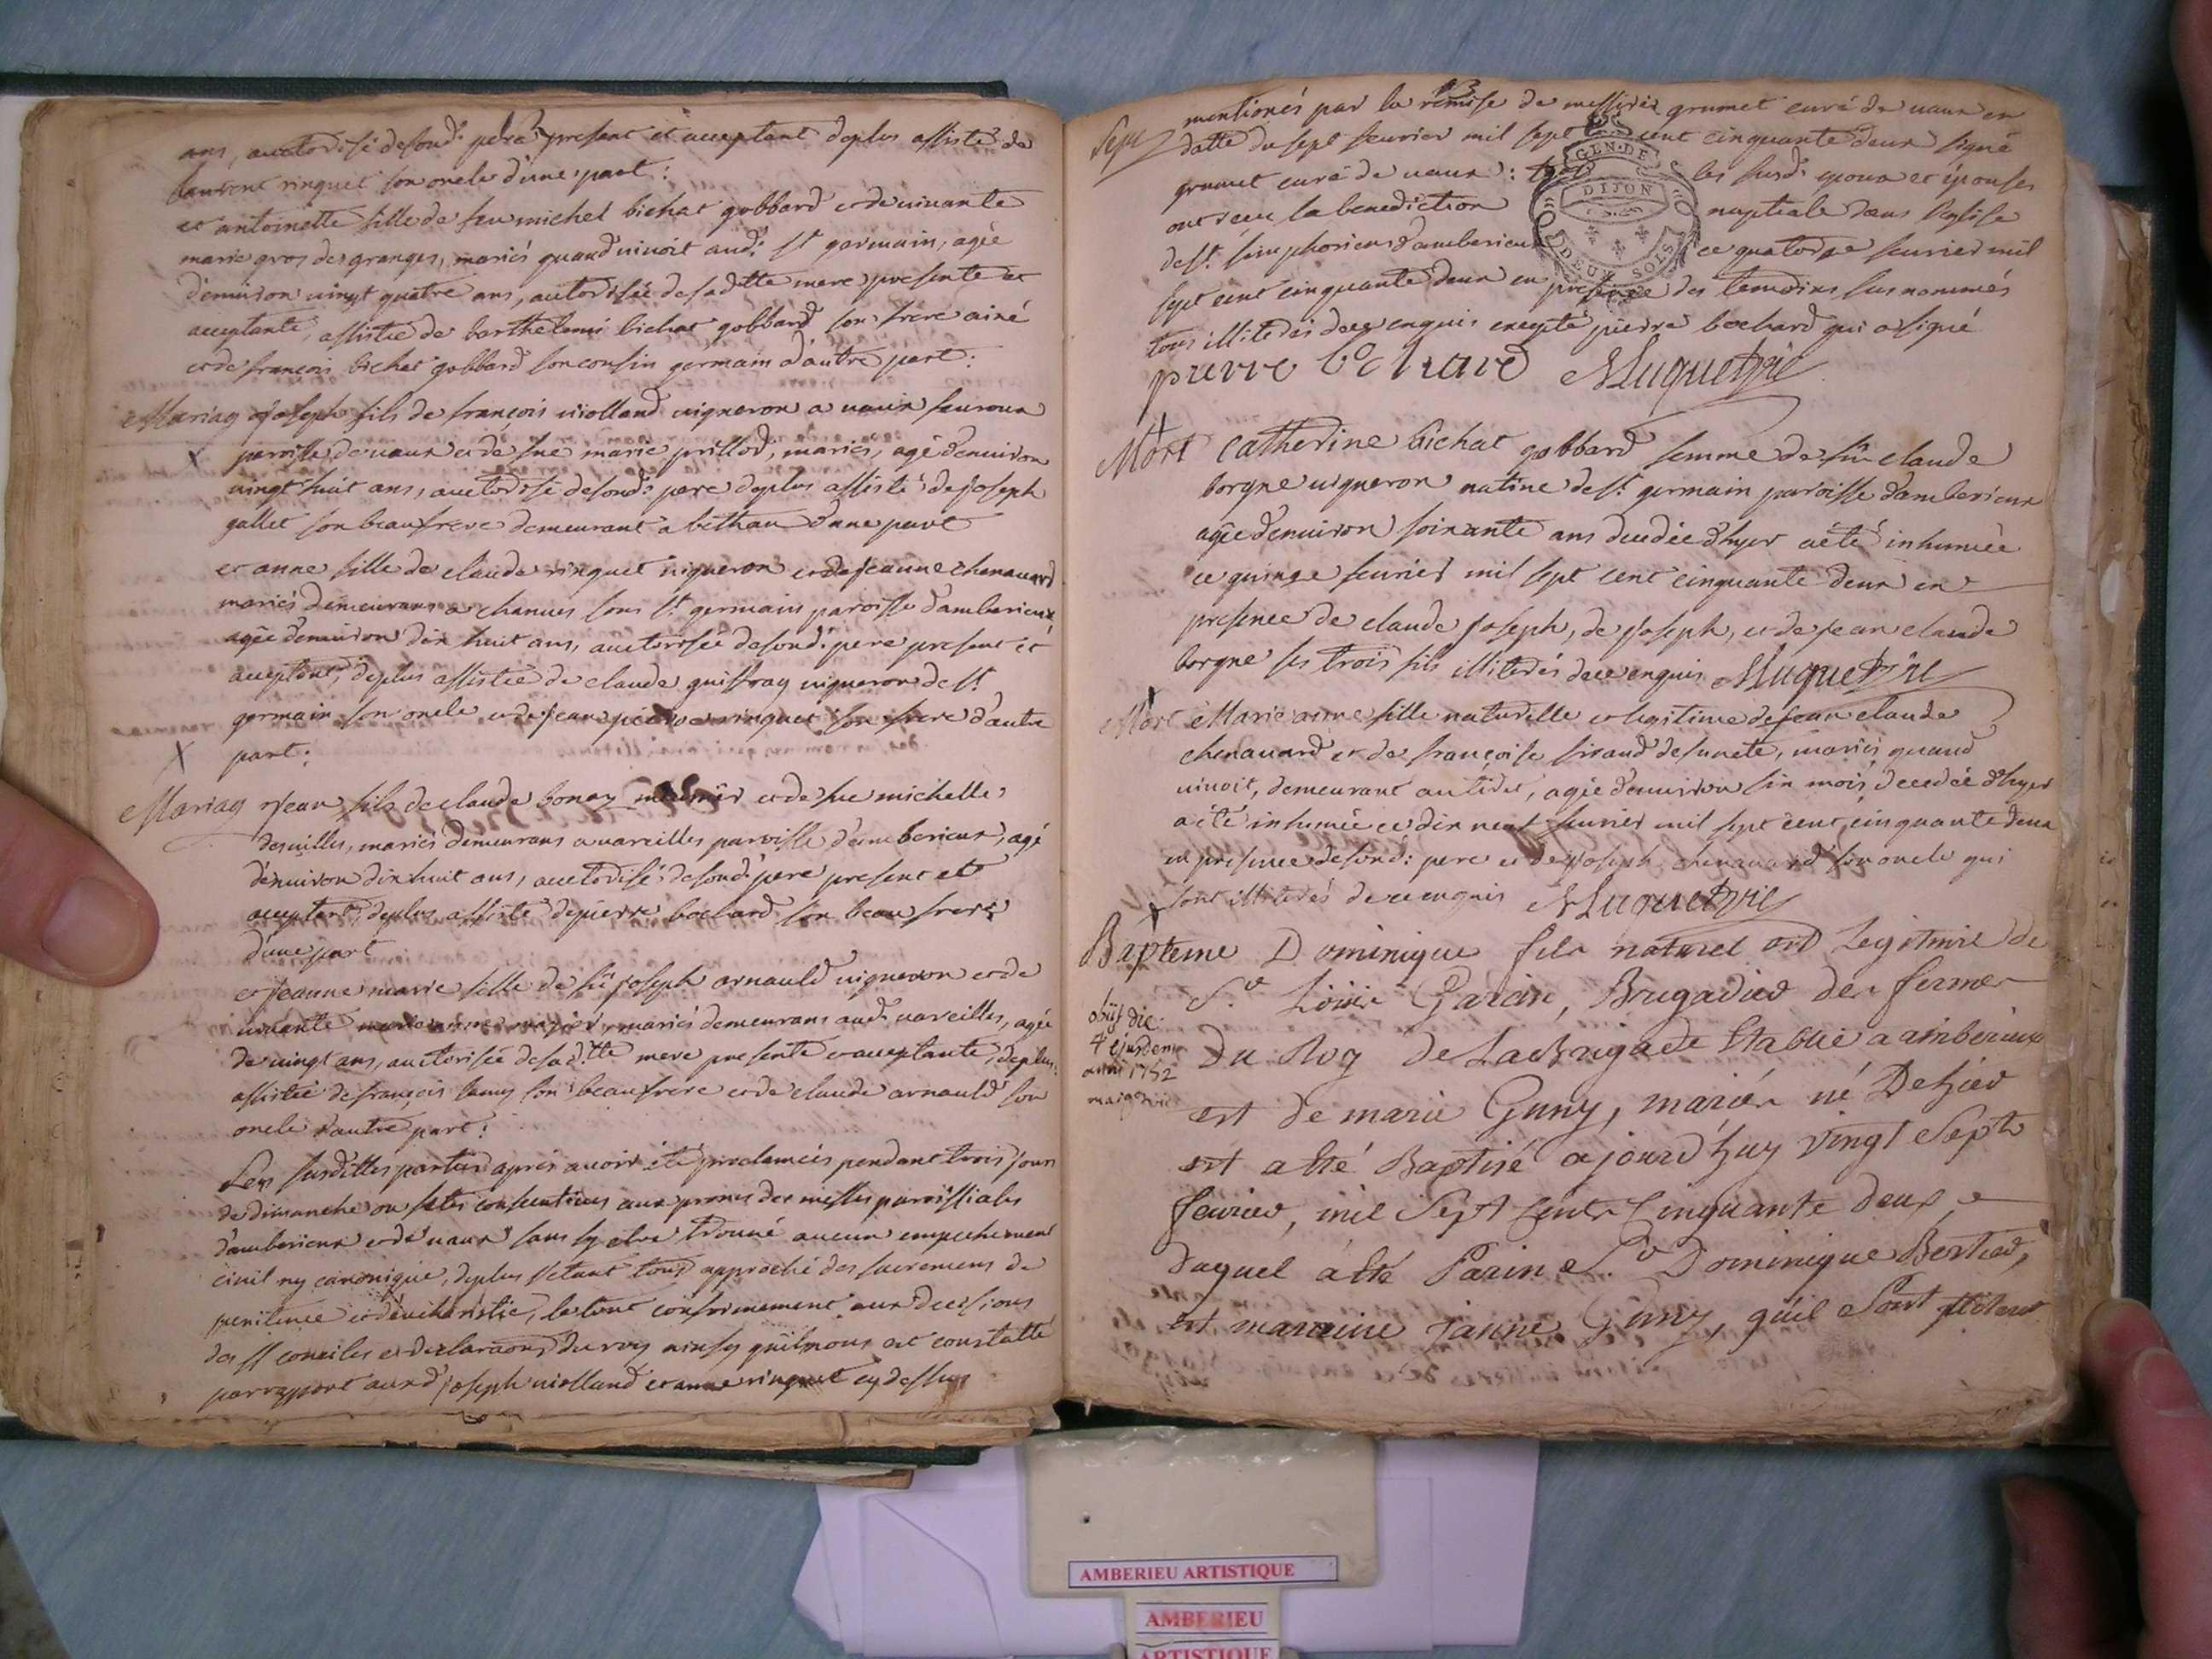 ans, auctorisé desond: pere present et acceptant deplus assisté de
laurent ringuet son oncle d'une part:
et antoinette fille de feu michel bichat gobbard et de vivante
marie gros des granges, mariés quand vivoit aud: st germain, agée
d'environ vingt quatre ans, autorisée de sa ditte mere presente et
acceptante, assistée de barthelemi bichat gobbard son frere ainé
et de françois bichat gobbard son cousin germain d'autre part:
Mariag joseph fils de françois violland vigneron a vaux
paroisse de vaux et de fue marie prillod, mariés, agé d'environ
vingt huit ans, auctorisé desond: pere deplus assisté de joseph
gallet son beaufrere demeurant a bettan d'une part
et anne fille de claude ringuet vigneron et de jeanne chenavard
mariés demeurans a chanves sous st germain paroisse d'amberieux
agée d'environ dix huit ans, auctorisée desond: pere present et
acceptant, deplus assistée de claude guiffray vigneron de st
germain son oncle et de jean pierre ringuet son frere d'autre
part:
Mariag jean fils de claude bonay et de fue michelle
desvilles, mariés demeurans a vareilles paroisse d'amberieux, agé
d'environ dix huit ans, auctorisé desond: pere present et
acceptant, deplus assisté de pierre bochard son beau frere
d'une part
et jeanne marie fille de fû joseph arnauld vigneron et de
vivante mariés demeurans aud: vareilles, agée
de vingt ans, auctorisée de sad:tte mere presente et acceptante, deplus
assistée de françois son beaufrere et de claude arnauld son
oncle d'autre part:
Les susdittes parties après avoir été proclamées pendant trois jours
de dimanche ou fetes consecutives aux prones des messes paroissiales
d'amberieux et de vaux sans s'y etre trouvé aucun empechement
civil ny canonique, deplus s'etant tous approché des sacremens de
penitence et d'eucharistie, le tout conformement aux decisions
des st conciles et declarations du roy ainsy qu'il nous est constatté
par rapport auxd: joseph violland et anne ringuet cy dessus
13
mentionés par la remise de messire grumet curé de vaux en
Sept datte du sept fevrier mil sept cent cinquante deux signé
grumet curé de vaux: les susd: epoux et épouses
ont reçu la benediction nuptiale dans l'eglise
de st. simphorien d'amberieux ce quatorze fevrier mil
sept cent cinquante deux en presence des temoins sus nommés
tous illiterés de ce enquis excepté pierre bochard qui a signé
GEN·DE
DIJON
DEUX SOLS
pierre bochard Muguet
Mort Catherine bichat gobbard femme de fû claude
borgne vigneron native de st germain paroisse d'amberieux
agée d'environ soixante ans decedée d'hyer a été inhumée
ce quinze fevrier mil sept cent cinquante deux en
presence de claude joseph, de joseph, et de jean claude
borgne ses trois fils illiterés de ce enquis Muguet
Mort Marie anne fille naturelle et legitime de jean claude
chenavard et de françoise sixaud defuncte, mariés quand
vivoit, demeurant au tiret, agée d'environ six mois, decedée d'hyer
a été inhumée ce dix neuf fevrier mil sept cent cinquante deux
en presence de sond: pere et de joseph chenavard son oncle qui
sont illiterés de ce enquis Muguet
Bapteme Dominique fils naturel est Legitmie de
S.r Loüis Garcin, Brugadier des fermes
obijt die
4 ejusdem
anni 1752
Du Roy de Labrigade Etablie a amberieux
est de marie Guny, mariés né Dehier
est a Eté Baptisé ajourd'huy vingt sept
feuvier, mil Sept Cents Cinquante deux
duquel a Eté Parin S.r Dominique Bertier,
est marreine janne Guny, quil Sont
AMBERIEU ARTISTIQUE
AMBERIEU
ARTISTIQUE